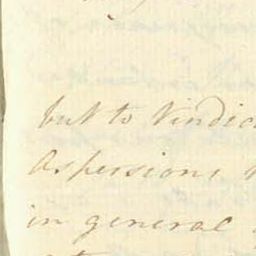 but to Vindic
Aspersions
in general